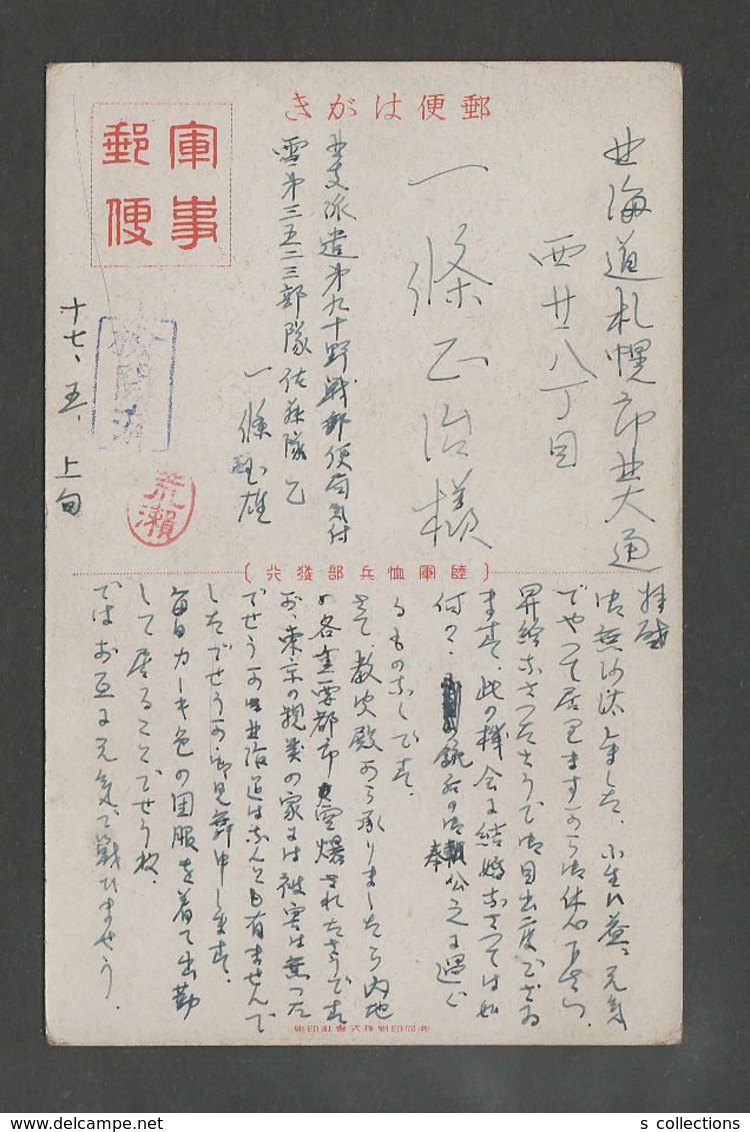 郵便はがき
軍事
郵便
北海道札幌市北大通
西廿八丁目
一條正治様
北支派遣第九十野戦郵便局気付
雲第三五二三部隊佐藤隊乙
一條
雄
検閲済
荒瀬
十七、五、上旬
(陸軍恤兵部發行)
拝啓
御無沙汰しました、小生は益々元気
でやつて居りますから御休心下さい、
昇給なさつたさうで御目出度うござゐ
ます、此の機会に結婚なさつては如
何か、銃后の御奉公之に過ぐ
るものなしです、
さて、教史殿から承りましたら内地
の各重要都市空爆されたさうです
が、東京の親類の家には被害は無つた
でせうか、北海道はなんとも有ませんで
したでせうか御見舞申します、
毎日カーキ色の国服を着て出勤
して居ることでせうね、
ではお互に元気で戦ひませう、
共同印刷株式會社印刷
s collections